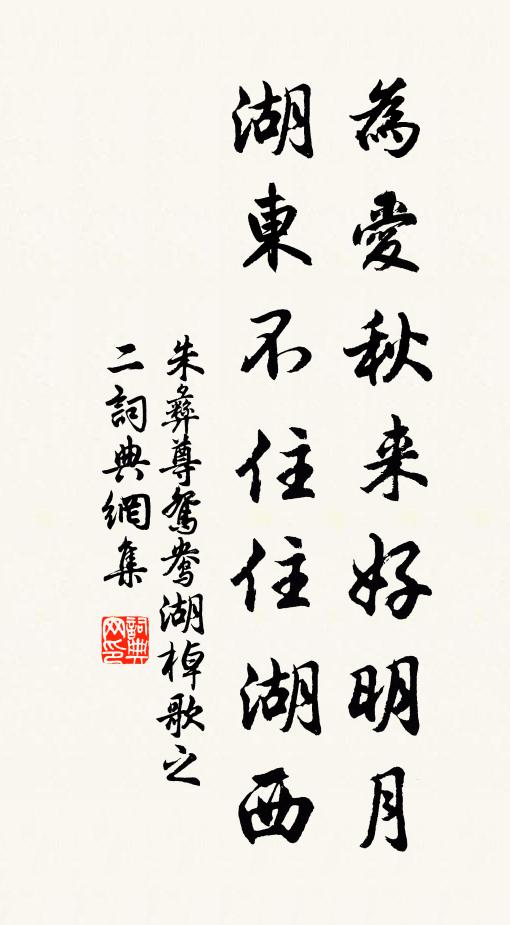 為愛秋来好明月
湖東不住住湖西
朱彝尊鴛鴦湖棹歌之
二詞典網集
詞典
网印